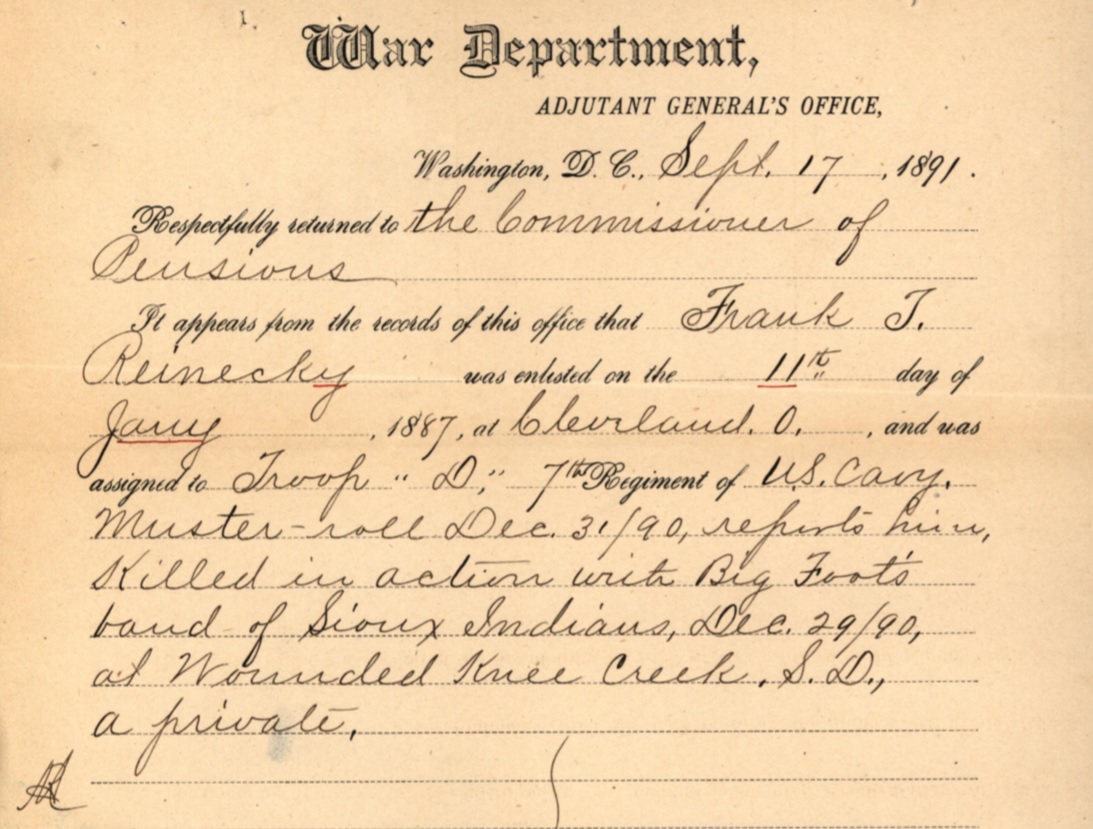 War Department,
ADJUTANT GENERAL'S OFFICE,
Washington, D. C., Sept. 17, 1891.
Respectfully returned to the Commissioner of
Pensions
It appears from the records of this office that Frank T.
Reinecky was enlisted on the 11th day of
Jany, 1887, at Cleveland. O., and was
assigned to Troop "D," 7th Regiment of U.S. Cavy.
Muster-roll Dec. 31/90, reports him,
Killed in action with Big Foot's
band of Sioux Indians, Dec. 29/90,
at Wounded Knee Creek, S.D.,
a private.